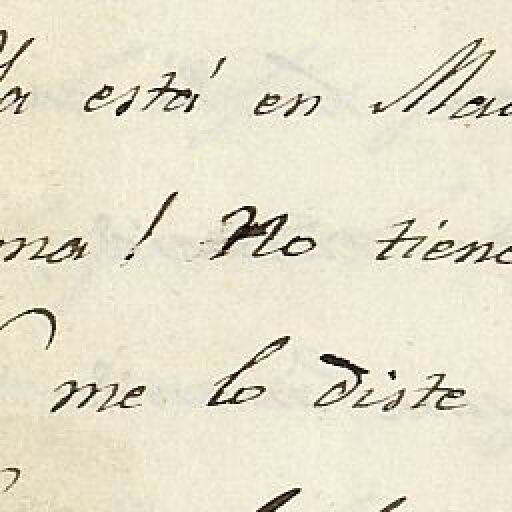 Ya está en Mad
ma! No tiene
me lo diste